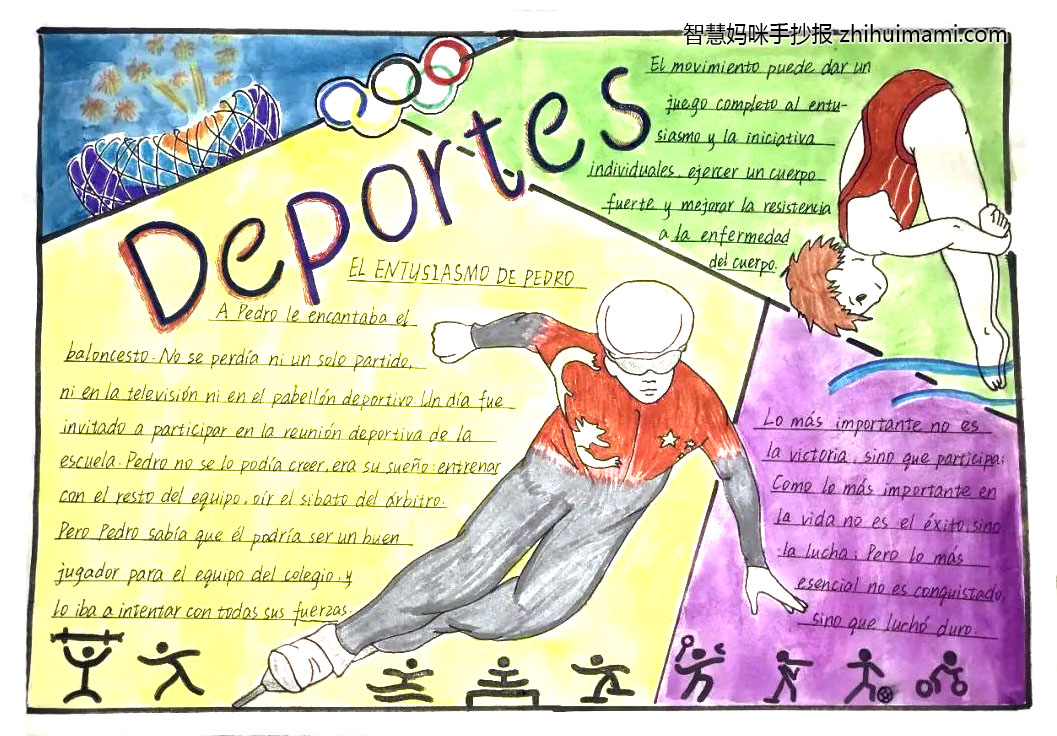 智慧妈咪手抄报 zhihuimami.com
Deportes
El movimiento puede dar un
juego completo al entu-
siasmo y la iniciativa
individuales, ejercer un cuerpo
fuerte y mejorar la resistencia
a la enfermedad
del cuerpo.
EL ENTUSIASMO DE PEDRO
A Pedro le encantaba el
baloncesto. No se perdía ni un solo partido,
ni en la televisión ni en el pabellón deportivo. Un día fue
invitado a participar en la reunión deportiva de la
escuela. Pedro no se lo podía creer, era su sueño: entrenar
con el resto del equipo, oír el sibato del árbitro.
Pero Pedro sabía que él podría ser un buen
jugador para el equipo del colegio, y
lo iba a intentar con todas sus fuerzas.
Lo más importante no es
la victoria, sino que participa;
Como lo más importante en
la vida no es el éxito, sino
la lucha; Pero lo más
esencial no es conquistado,
sino que luchó duro.